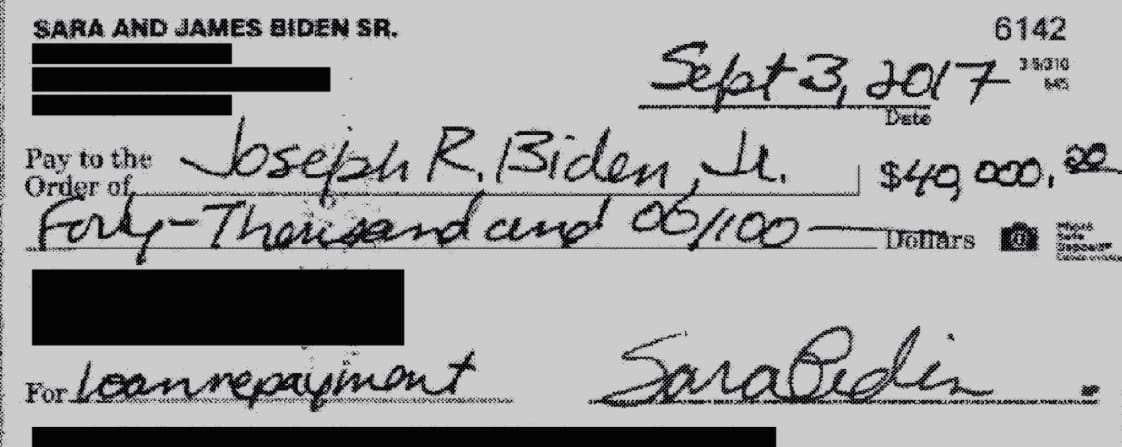 SARA AND JAMES BIDEN SR.
6142
Sept 3, 2017
Date
Pay to the
Order of Joseph R. Biden, Jr. $40,000.00
Forty-Thousand and 00/100 Dollars
For Loan repayment Sara Biden